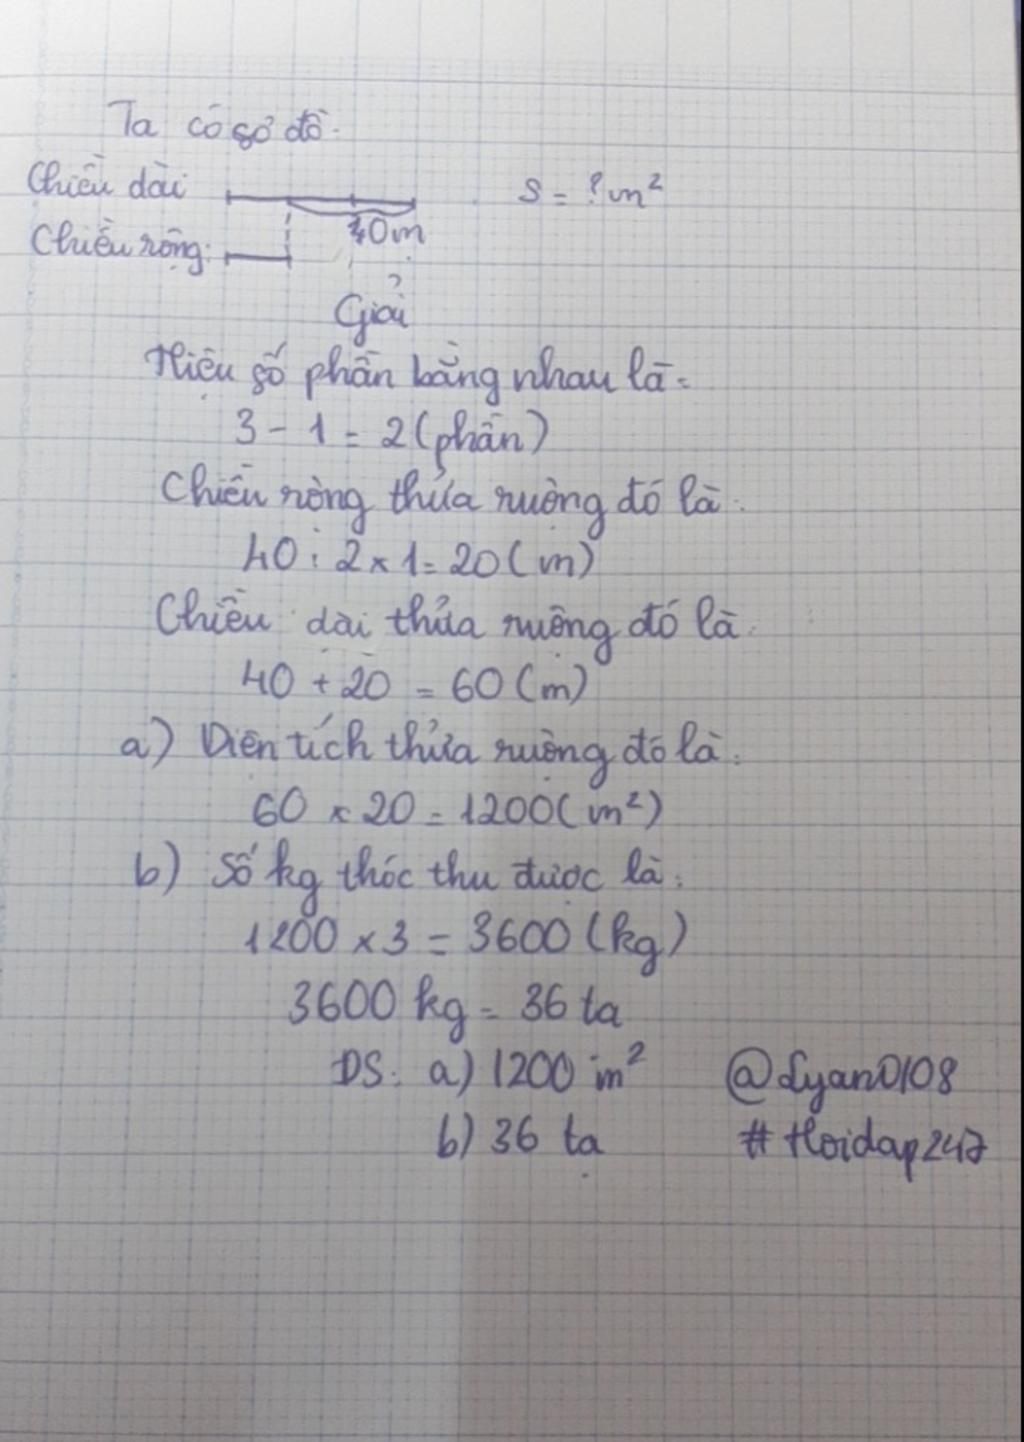 Ta có sơ đồ.
Chiều dài
S = ? m²
40m
Chiều rộng:
Giải
Hiệu số phần bằng nhau là:
3 - 1 = 2 (phần)
Chiều rộng thửa ruộng đó là:
40 : 2 x 1 = 20 (m)
Chiều dài thửa ruộng đó là:
40 + 20 = 60 (m)
a) Diện tích thửa ruộng đó là:
60 x 20 = 1200 (m²)
b) Số kg thóc thu được là:
1200 x 3 = 3600 (kg)
3600 kg = 36 tạ
ĐS: a) 1200 m²
b) 36 tạ
@Lyan0108
# Hoidap247